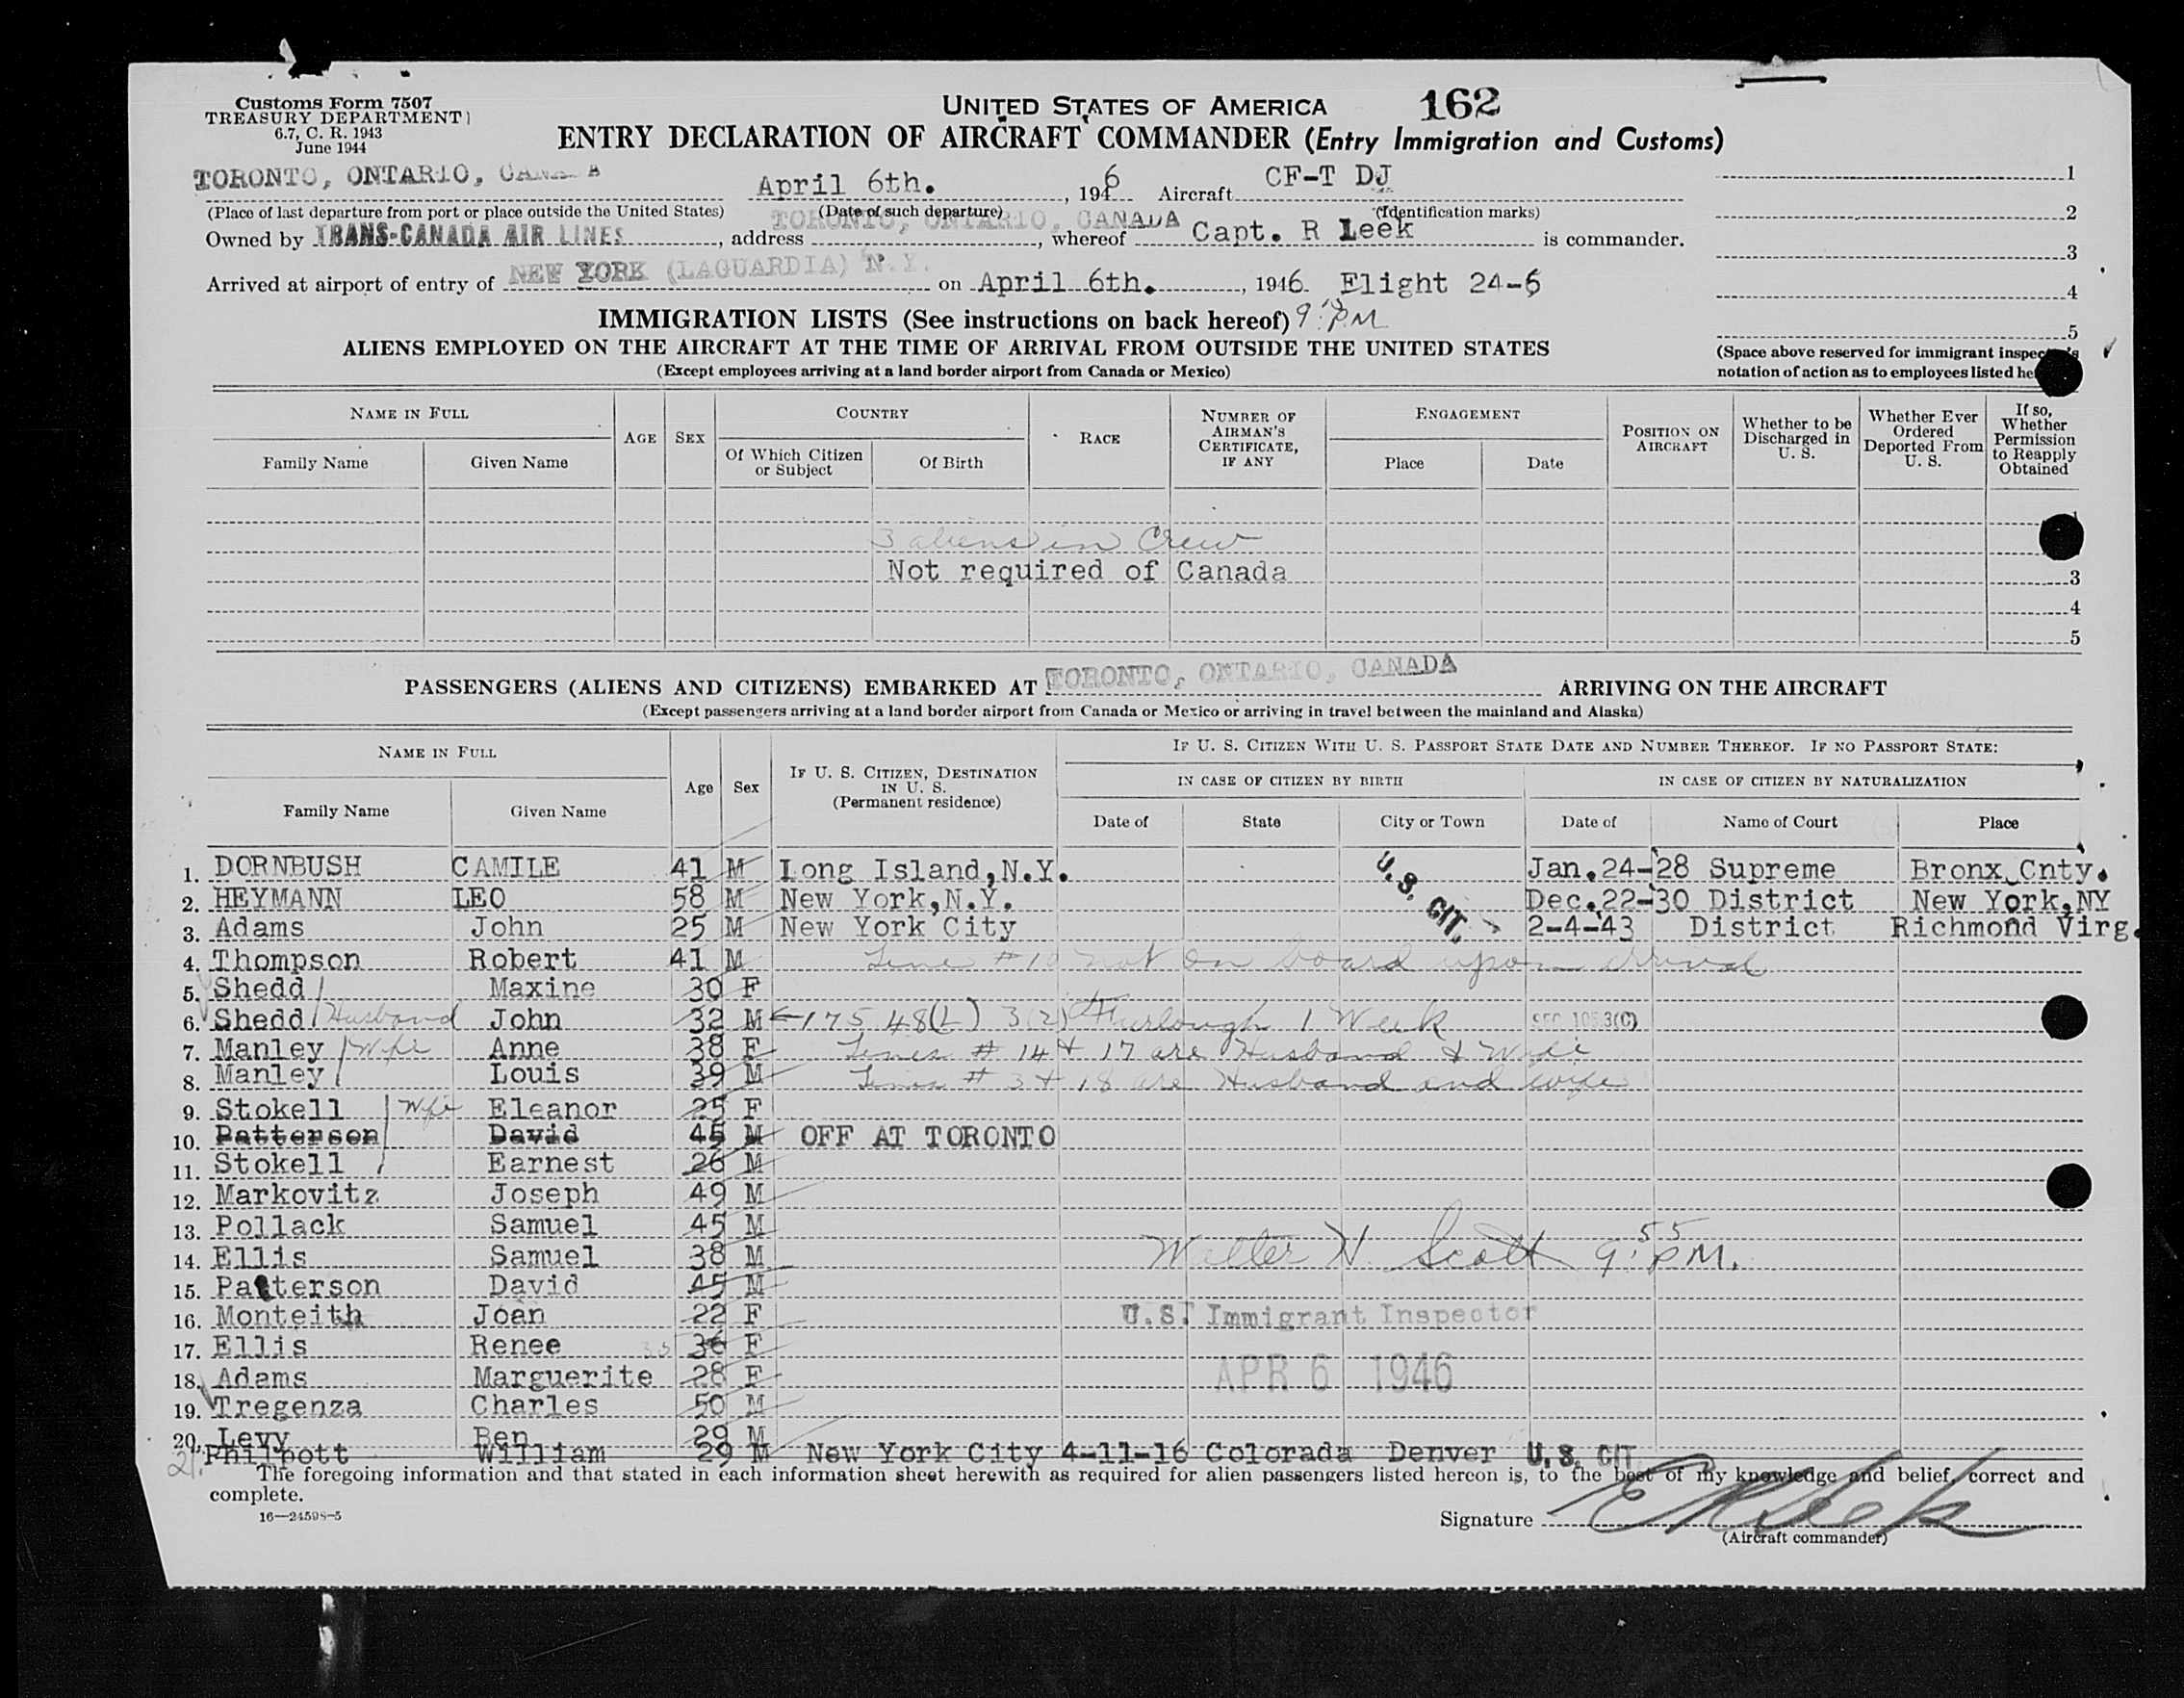 Customs Form 7507
TREASURY DEPARTMENT
6.7, C. R. 1943
June 1944
UNITED STATES OF AMERICA 162
ENTRY DECLARATION OF AIRCRAFT COMMANDER (Entry Immigration and Customs)
TORONTO, ONTARIO, CANADA April 6th. , 1946 Aircraft CF-T DJ 1
(Place of last departure from port or place outside the United States) (Date of such departure) (Identification marks) 2
Owned by TRANS-CANADA AIR LINES , address TORONTO, ONTARIO, CANADA , whereof Capt. R Leek is commander. 3
Arrived at airport of entry of NEW YORK (LAGUARDIA) N.Y. on April 6th. , 1946 Flight 24-6 4
IMMIGRATION LISTS (See instructions on back hereof) 5
ALIENS EMPLOYED ON THE AIRCRAFT AT THE TIME OF ARRIVAL FROM OUTSIDE THE UNITED STATES
(Except employees arriving at a land border airport from Canada or Mexico)
(Space above reserved for immigrant inspector's
notation of action as to employees listed
NAME IN FULL AGE SEX COUNTRY RACE NUMBER OF AIRMAN'S CERTIFICATE, IF ANY ENGAGEMENT POSITION ON AIRCRAFT Whether to be Discharged in U. S. Whether Ever Ordered Deported From U. S. If so, Whether Permission to Reapply Obtained
Family Name Given Name Of Which Citizen or Subject Of Birth Place Date
3 aliens in Crew
Not required of Canada 3
4
5
PASSENGERS (ALIENS AND CITIZENS) EMBARKED AT TORONTO, ONTARIO, CANADA ARRIVING ON THE AIRCRAFT
(Except passengers arriving at a land border airport from Canada or Mexico or arriving in travel between the mainland and Alaska)
NAME IN FULL Age Sex IF U. S. CITIZEN, DESTINATION IN U. S. (Permanent residence) IF U. S. CITIZEN WITH U. S. PASSPORT STATE DATE AND NUMBER THEREOF. IF NO PASSPORT STATE:
IN CASE OF CITIZEN BY BIRTH IN CASE OF CITIZEN BY NATURALIZATION
Family Name Given Name Date of State City or Town Date of Name of Court Place
1. DORNBUSH CAMILE 41 M Long Island, N.Y. U.S. CIT. Jan.24-'28 Supreme Bronx Cnty.
2. HEYMANN LEO 58 M New York, N.Y. Dec.22-'30 District New York, NY
3. Adams John 25 M New York City 2-4-'43 District Richmond Virg.
4. Thompson Robert 41 M Line #10 not on board upon arrival
5. Shedd Maxine 30 F
6. Shedd Husband John 32 M 175.48(L) 3(2) Furlough 1 Week
7. Manley Wife Anne 38 F Lines # 14 + 17 are Husband & Wife
8. Manley Louis 39 M Lines # 3 + 18 are Husband and wife
9. Stokell Wife Eleanor 25 F
10. Patterson David 45 M OFF AT TORONTO
11. Stokell Earnest 26 M
12. Markovitz Joseph 49 M
13. Pollack Samuel 45 M
14. Ellis Samuel 38 M Walter H. Scott 9:55 PM.
15. Patterson David 45 M
16. Monteith Joan 22 F U.S. Immigrant Inspector
17. Ellis Renee 35 36 F
18. Adams Marguerite 28 F APR 6 1946
19. Tregenza Charles 50 M
20. Levy Ben 29 M
21. Philpott William 29 M New York City 4-11-16 Colorada Denver U.S. CIT
The foregoing information and that stated in each information sheet herewith as required for alien passengers listed hereon is, to the best of my knowledge and belief, correct and
complete.
16—24598-5
Signature E R Leek
(Aircraft commander)